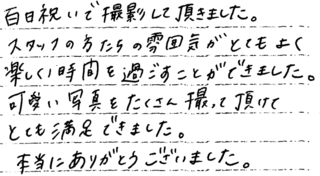 百日祝いで撮影して頂きました。
スタッフの方たちの雰囲気がとてもよく
楽しく時間を過ごすことができました。
可愛い写真をたくさん撮って頂けて
とても満足できました。
本当にありがとうございました。